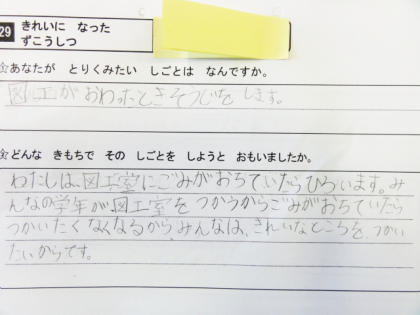 29
きれいに なった
ずこうしつ
☆あなたが とりくみたい しごとは なんですか。
図工がおわったときそうじをします。
☆どんな きもちで その しごとを しようと おもいましたか。
わたしは、図工室にごみがおちていたらひろいます。み
んなの学年が図工室をつかうからごみがおちていたら
つかいたくなくなるからみんなは、きれいなところを、つかい
たいからです。